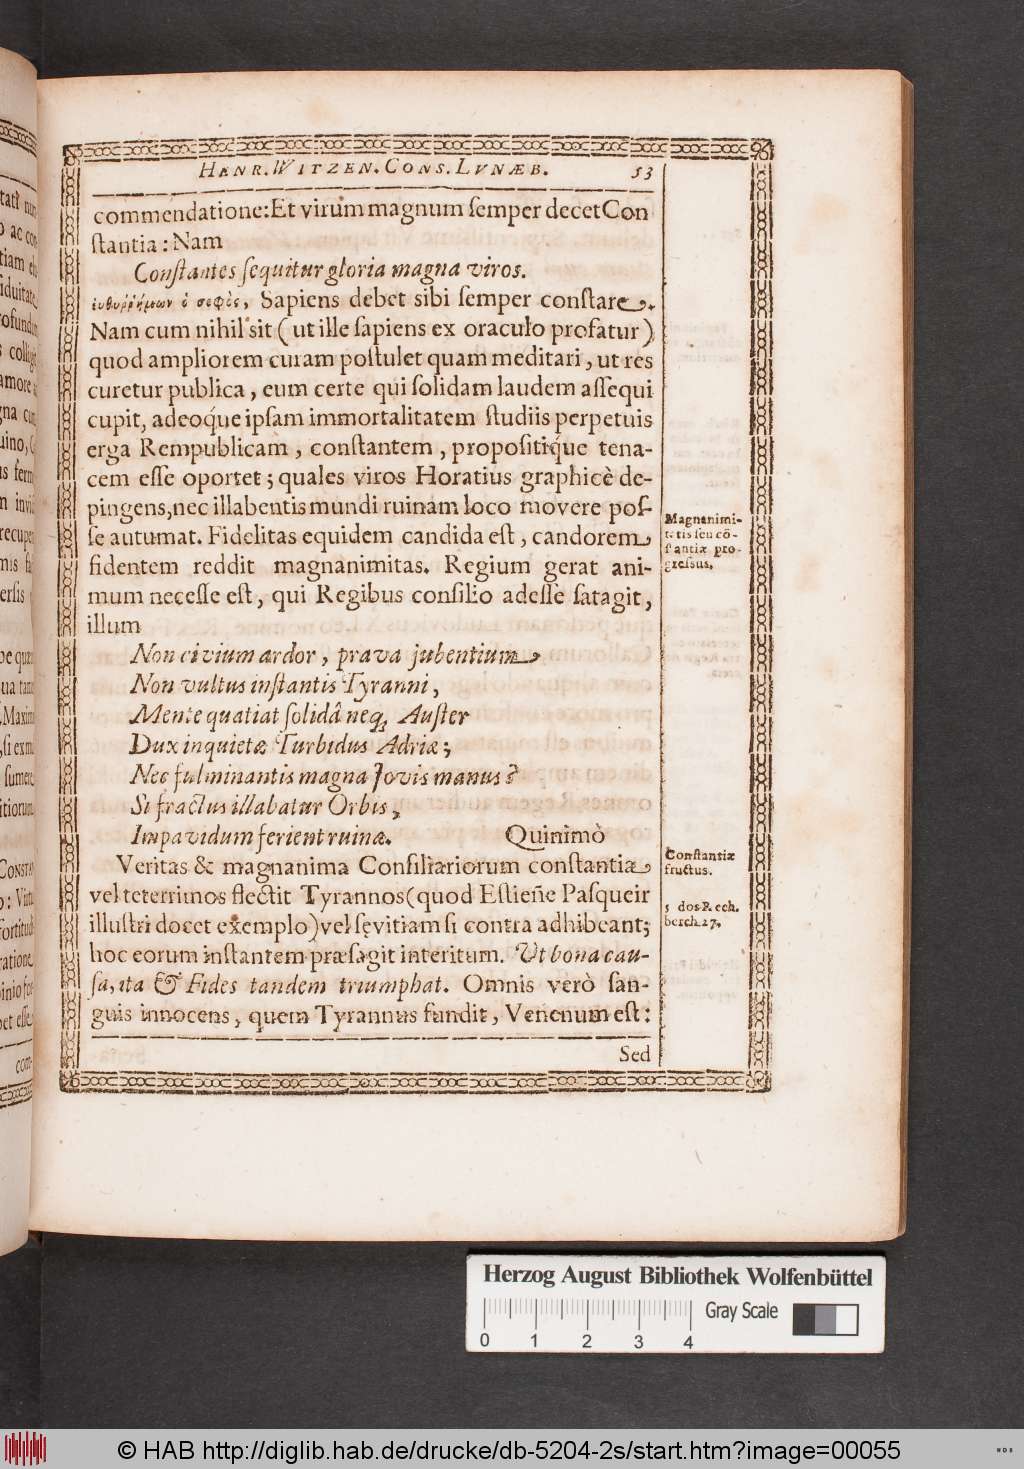 HENR. WITZEN. CONS. LVNÆB. 53
commendatione: Et virum magnum semper decet Con
stantia: Nam
Constantes sequitur gloria magna viros.
ὁ σοφὸς, Sapiens debet sibi semper constare.
Nam cum nihil sit (ut ille sapiens ex oraculo profatur)
quod ampliorem curam postulet quam meditari, ut res
curetur publica, eum certe qui solidam laudem assequi
cupit, adeoq́ue ipsam immortalitatem studiis perpetuis
erga Rempublicam, constantem, propositiq́ue tena-
cem esse oportet; quales viros Horatius graphicè de-
pingens, nec illabentis mundi ruinam loco movere pos-
se autumat. Fidelitas equidem candida est, candorem
fidentem reddit magnanimitas. Regium gerat ani-
mum necesse est, qui Regibus consilio adesse satagit,
illum
Non civium ardor, prava jubentium
Non vultus instantis Tyranni,
Mente quatiat solidâ neq, Auster
Dux inquietæ Turbidus Adriæ;
Nec fulminantis magna Jovis manus?
Si fractus illabatur Orbis,
Impavidum ferient ruinæ. Quinimò
Veritas & magnanima Consiliariorum constantia
vel teterrimos flectit Tyrannos (quod Estieñe Pasqueir
illustri docet exemplo) vel sęvitiam si contra adhibeant;
hoc eorum instantem præsagit interitum. Ut bona cau-
sa, ita & Fides tandem triumphat. Omnis verò san-
guis innocens, quem Tyrannus fundit, Venenum est:
Sed
Magnanimi-
tatis seu cō-
stantiæ pro-
gressus.
Constantiæ
fructus.
5 dos Rech.
berch. 27.
tiam
amore
recuper
ersis
CONSTAN
com-
Herzog August Bibliothek Wolfenbüttel
0 1 2 3 4
Gray Scale
© HAB http://diglib.hab.de/drucke/db-5204-2s/start.htm?image=00055